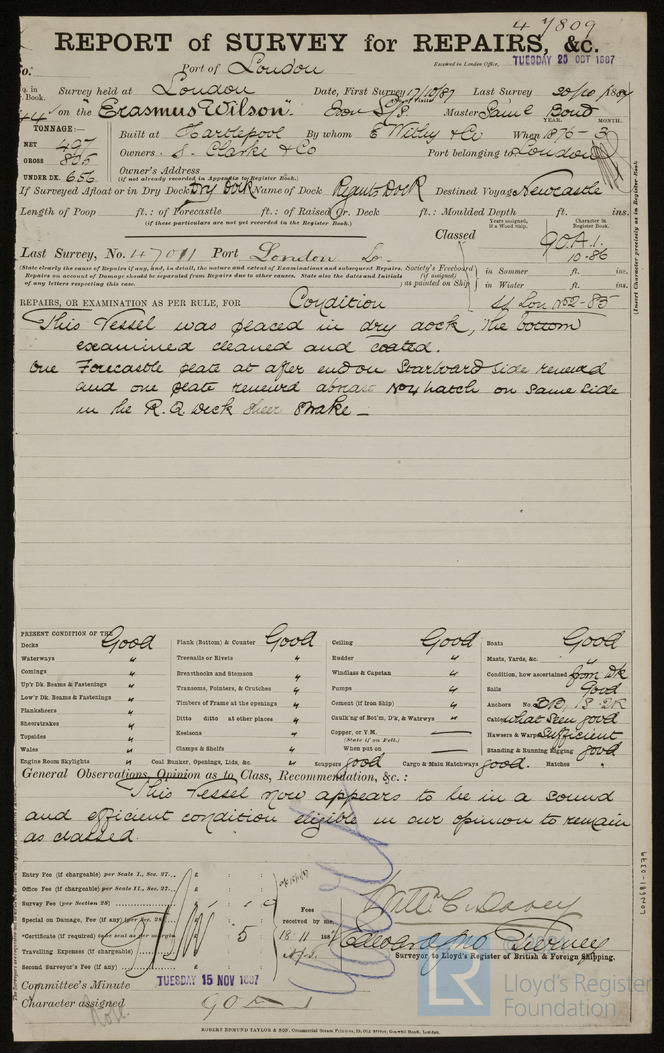 47809
REPORT of SURVEY for REPAIRS, &c.
Port of London
Received in London Office, TUESDAY 25 OCT 1887
Survey held at London Date, First Survey 17/10/87 Last Survey 20/10/1887
on the "Erasmus Wilson". Master Saml Bond
TONNAGE:—
NET 497
GROSS 855
UNDER DK. 656
Built at Hartlepool By whom E Withy & Co When 1876 - 3
YEAR. MONTH.
Owners S. Clarke & Co Port belonging to London
Owner's Address
(if not already recorded in Appendix to Register Book.)
If Surveyed Afloat or in Dry Dock Dry Dock Name of Dock Regents Dock Destined Voyage Newcastle
Length of Poop ft.: of Forecastle ft.: of Raised Qr. Deck ft.: Moulded Depth ft. ins.
(if these particulars are not yet recorded in the Register Book.)
Years assigned, if a Wood ship. Character in Register Book.
Classed 90.A.1.
10-86
Last Survey, No. 47011 Port London
(State clearly the cause of Repairs, if any, and, in detail, the nature and extent of Examinations and subsequent Repairs. Repairs on account of Damage should be separated from Repairs due to other causes. State also the dates and initials of any letters respecting this case.
Society's Freeboard (if assigned) as painted on Ship in Summer ft. ins.
in Winter ft. ins.
(Insert Character precisely as in Register Book.
REPAIRS, OR EXAMINATION AS PER RULE, FOR Condition
This Vessel was placed in dry dock, the bottom
examined cleaned and coated.
One Forecastle plate at after end on Starboard side renewed
and one plate renewed abreast No 4 hatch on same side
in the R.Q. Deck sheer strake —
PRESENT CONDITION OF THE
Decks Good
Waterways "
Comings "
Up'r Dk. Beams & Fastenings "
Low'r Dk. Beams & Fastenings "
Planksheers "
Sheerstrakes "
Topsides "
Wales "
Engine Room Skylights "
Plank (Bottom) & Counter Good
Treenails or Rivets "
Breasthooks and Stemson "
Transoms, Pointers, & Crutches "
Timbers of Frame at the openings "
Ditto ditto at other places "
Keelsons "
Clamps & Shelfs "
Coal Bunker, Openings, Lids, &c. "
Ceiling Good
Rudder "
Windlass & Capstan "
Pumps "
Cement (if Iron Ship) "
Caulk'ng of Bot'm, D'k, & Watrwys "
Copper, or Y.M. —
(State if on Felt.)
When put on —
Scuppers good Cargo & Main Hatchways good.
Boats Good
Masts, Yards, &c. "
Condition, how ascertained from Dk
Sails Good
Anchors No.
Cables what seen good
Hawsers & Warps Sufficient
Standing & Running Rigging good
Hatches "
General Observations, Opinion as to Class, Recommendation, &c. :
This Vessel now appears to be in a sound
and efficient condition eligible in our opinion to remain
as classed.
LON681-0379
Entry Fee (if chargeable) per Scale I., Sec. 27...
Office Fee (if chargeable) per Scale II., Sec. 27...
Survey Fee (per Section 28)
Special on Damage, Fee (if any) (per Sec. 28)
*Certificate (if required) to be sent as per margin 5
Travelling Expenses (if chargeable)
Second Surveyor's Fee (if any)
Fees received by me,
18-11 1887
Surveyor to Lloyd's Register of British & Foreign Shipping.
Committee's Minute TUESDAY 15 NOV 1887
Character assigned 90 A 1
Lloyd's Register
Foundation
ROBERT EDMUND TAYLOR & SON, Commercial Steam Printers, 19, Old Street, Goswell Road, London.